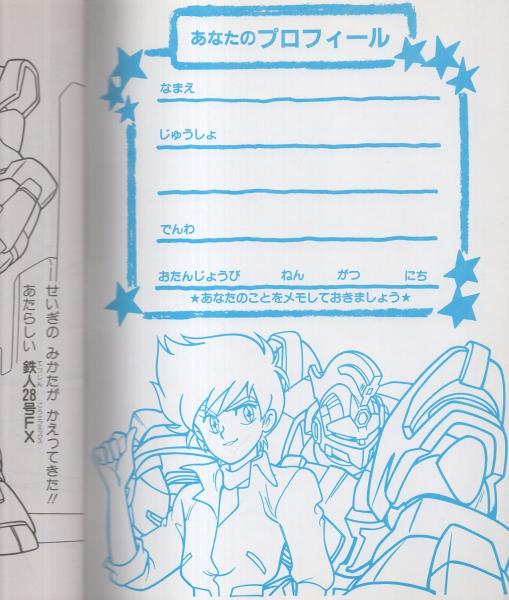 あなたのプロフィール
なまえ
じゅうしょ
でんわ
おたんじょうび ねん がつ にち
★あなたのことをメモしておきましょう★
せいぎの みかたが かえってきた!!
あたらしい 鉄人28号FX